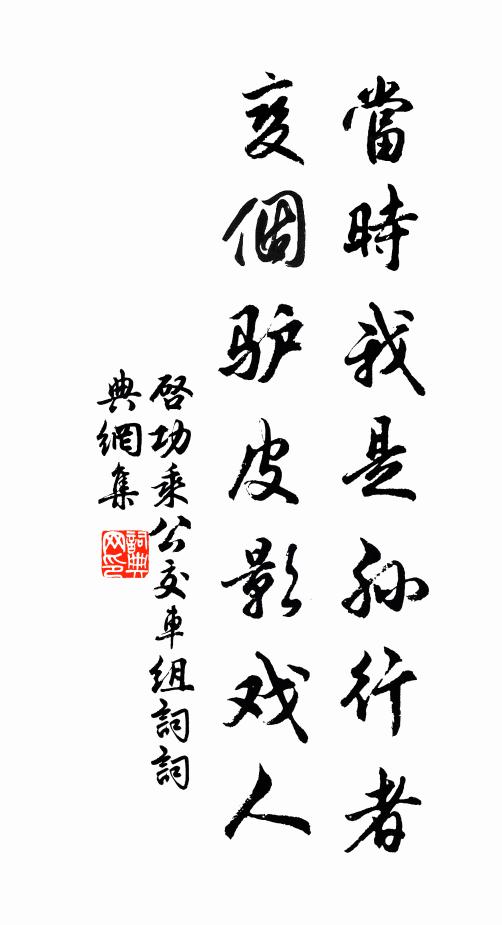 當時我是孙行者
变個驴皮影戏人
啓功乘公交車組詞詞
典網集
詞典
网印